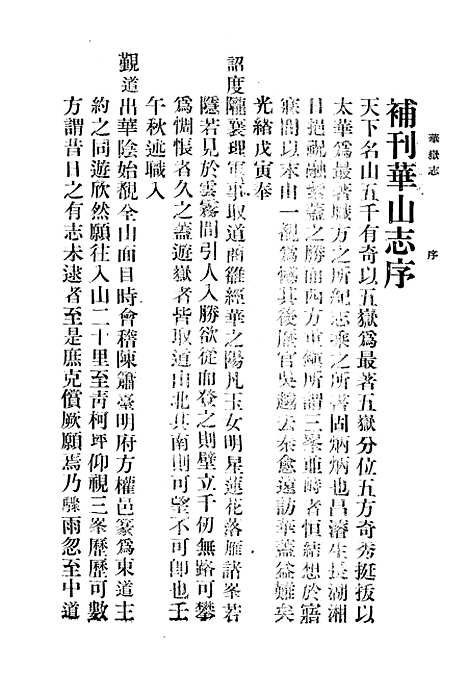 華嶽志　序
補刊華山志序
天下名山五千有奇以五嶽爲最著五嶽分位五方奇秀挺拔以
太華爲最著職方之所紀志乘之所著固炳炳也昌濬生長湖湘
日挹視融紫蓋之勝而西方重鎭所謂三峯並峙者恒結想於寤
寐間以未由一覩爲憾其後歷官吳越去秦愈遠訪華蓋益難矣
光緒戊寅奉
詔度隴襄理軍事取道商雒經華之陽凡玉女明星蓮花落雁諸峯若
隱若見於雲霧間引人入勝欲從而登之則壁立千仞無路可攀
爲惆悵者久之蓋遊嶽者皆取道山北其南則可望不可卽也壬
午秋述職入
覲道出華陰始覩全山面目時會稽陳肅臺明府方權邑篆爲東道主
約之同遊欣然願往入山二十里至靑柯坪仰視三峯歷歷可數
方謂昔日之有志未逮者至是庶克償厥願焉乃驟雨忽至中道